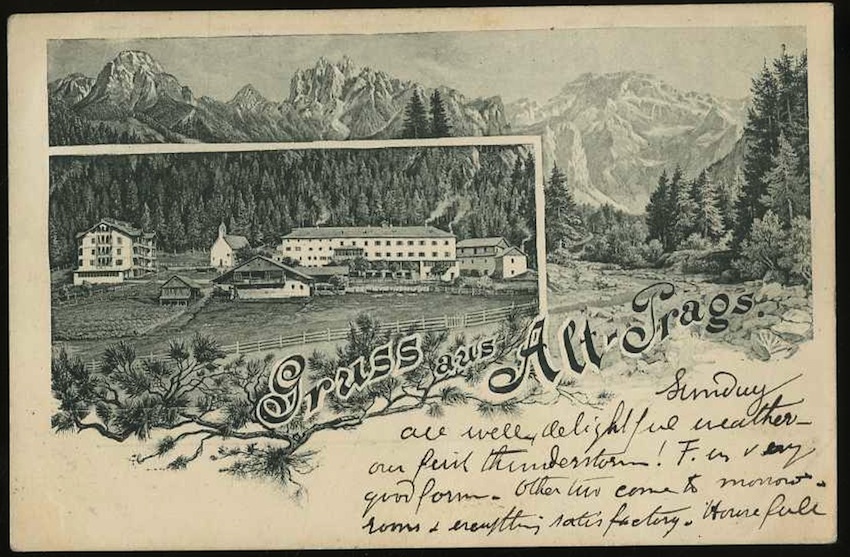 Gruss aus Alt-Prags.
Sunday
all well, delightful weather-
our first thunderstorm! F. in very
good form - Other two come to morrow.
rooms & everything satisfactory. House full